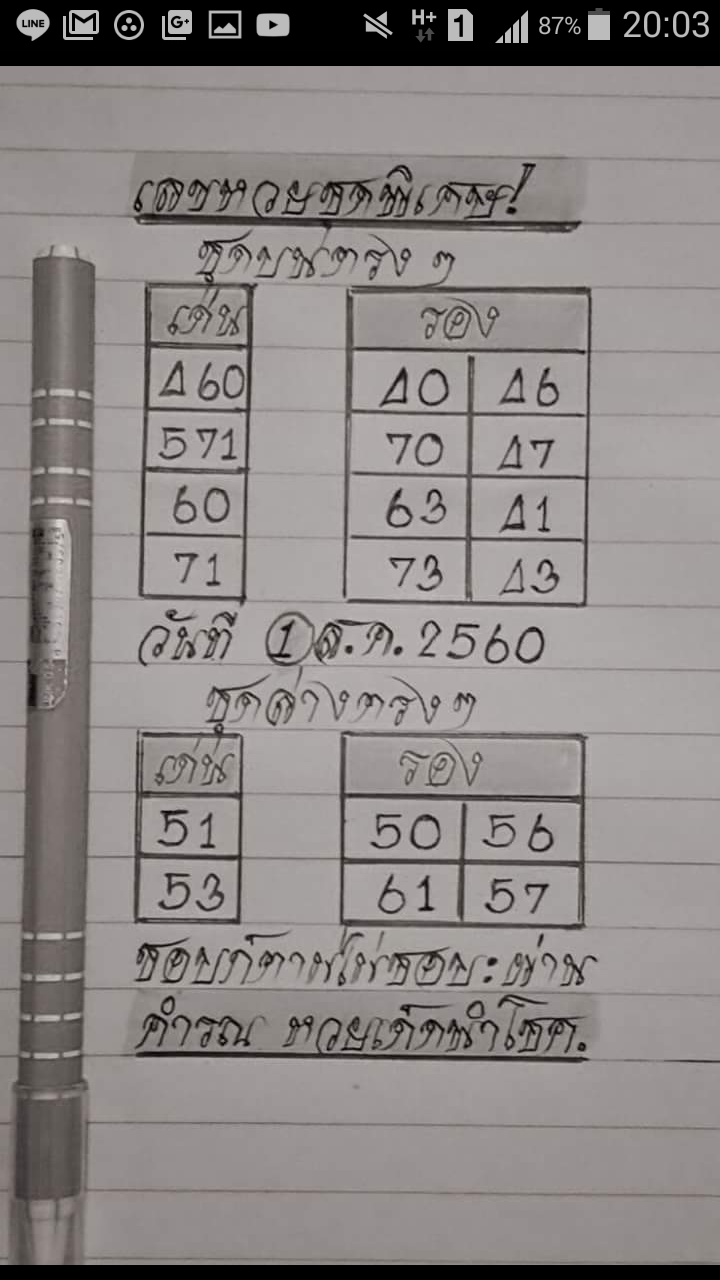 LINE G+ H+ 1 87% 20:03
เลขหวยชุดพิเศษ!
ชุดบนตรง ๆ
เด่น รอง
Δ60 Δ0 Δ6
571 70 Δ7
60 63 Δ1
71 73 Δ3
วันที่ 1 ส.ค. 2560
ชุดล่างตรง ๆ
เด่น รอง
51 50 56
53 61 57
ชอบก็ตามไม่ชอบ: ผ่าน
หวยเด็ดนำโชค.